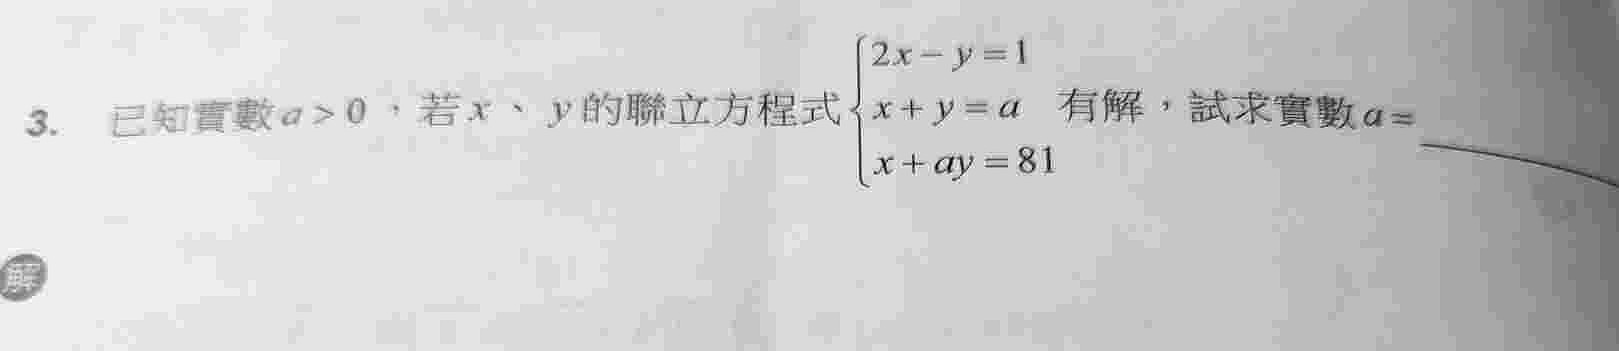 3. 已知實數a>0，若x、y的聯立方程式{2x-y=1
x+y=a 有解，試求實數a=
x+ay=81
解